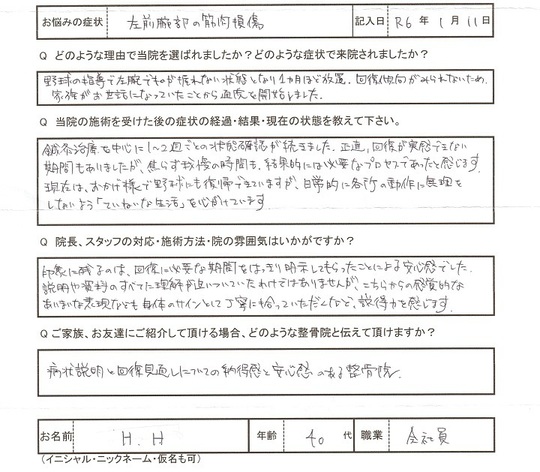 お悩みの症状 左前腕部の筋肉損傷 記入日 R6年1月11日
Q どのような理由で当院を選ばれましたか？どのような症状で来院されましたか？
野球の指導で左腕でものが振れない状態となり1ヵ月ほど放置。回復傾向がみられないため、
家族がお世話になっていたことから通院を開始しました。
Q 当院の施術を受けた後の症状の経過・結果・現在の状態を教えて下さい。
鍼灸治療を中心に1〜2週ごとの状態確認が続きました。正直、回復が実感できない
期間もありましたが、焦らず我慢の時間も、結果的には必要なプロセスであったと感じます。
現在は、おかげ様で野球にも復帰できていますが、日常的に各所の動作に無理を
しないよう「ていねいな生活」を心がけています。
Q 院長、スタッフの対応・施術方法・院の雰囲気はいかがですか？
印象に残るのは、回復に必要な期間をはっきり明示してもらったことによる安心感でした。
説明や資料のすべてに理解が追いついていたわけではありませんが、こちらからの感覚的な
あいまいな表現なども身体のサインとして丁寧に拾っていただくなど、説得力を感じます。
Q ご家族、お友達にご紹介して頂ける場合、どのような整骨院と伝えて頂けますか？
病状説明と回復見通しについての納得感と安心感のある整骨院
お名前 H.H 年齢 40代 職業 会社員
(イニシャル・ニックネーム・仮名も可)